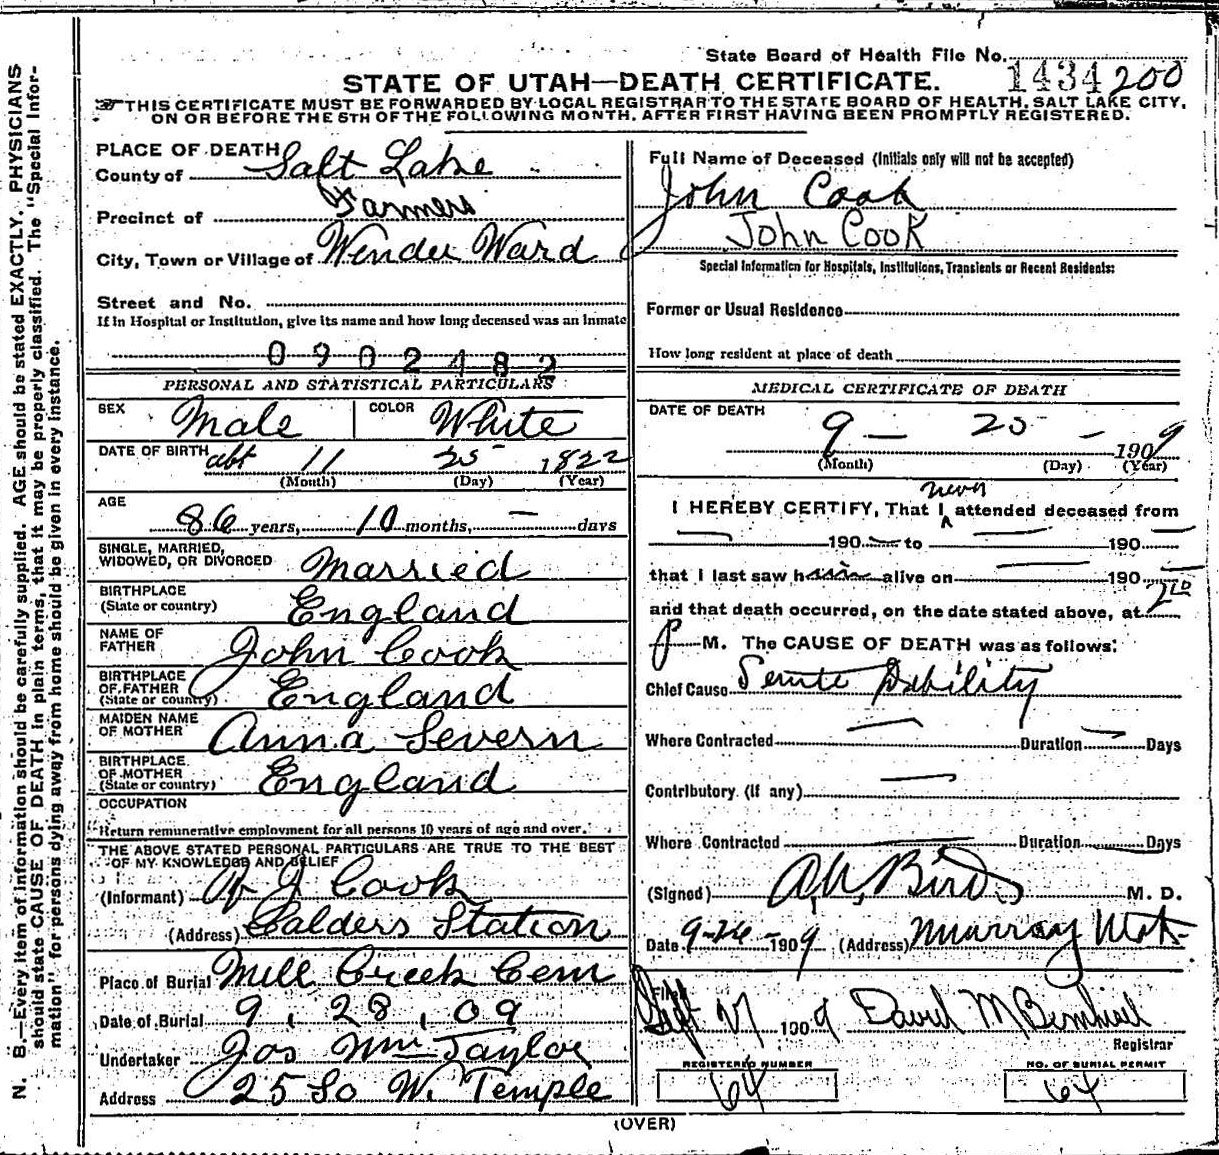 State Board of Health File No. 1434200
STATE OF UTAH—DEATH CERTIFICATE.
THIS CERTIFICATE MUST BE FORWARDED BY LOCAL REGISTRAR TO THE STATE BOARD OF HEALTH, SALT LAKE CITY,
ON OR BEFORE THE 5TH OF THE FOLLOWING MONTH, AFTER FIRST HAVING BEEN PROMPTLY REGISTERED.
PLACE OF DEATH
County of Salt Lake
Precinct of Farmers
City, Town or Village of Winder Ward
Street and No.
If in Hospital or Institution, give its name and how long deceased was an inmate
0902482
PERSONAL AND STATISTICAL PARTICULARS
SEX Male COLOR White
DATE OF BIRTH abt 11 25 1822
(Month) (Day) (Year)
AGE
86 years, 10 months, — days
SINGLE, MARRIED,
WIDOWED, OR DIVORCED Married
BIRTHPLACE
(State or country) England
NAME OF
FATHER John Cook
BIRTHPLACE
OF FATHER
(State or country) England
MAIDEN NAME
OF MOTHER Anna Severn
BIRTHPLACE
OF MOTHER
(State or country) England
OCCUPATION
Return remunerative employment for all persons 10 years of age and over.
THE ABOVE STATED PERSONAL PARTICULARS ARE TRUE TO THE BEST
OF MY KNOWLEDGE AND BELIEF
(Informant) J Cook
(Address) Calders Station
Place of Burial Mill Creek Cem
Date of Burial 9, 28, 09
Undertaker Jos Wm Taylor
Address 25 So W. Temple
Full Name of Deceased (Initials only will not be accepted)
John Cook
John Cook
Special Information for Hospitals, Institutions, Transients or Recent Residents:
Former or Usual Residence
How long resident at place of death
MEDICAL CERTIFICATE OF DEATH
DATE OF DEATH
9 — 25 — 1909
(Month) (Day) (Year)
never
I HEREBY CERTIFY, That I attended deceased from
— 190 — to — 190 —
that I last saw h alive on — 190 —
and that death occurred, on the date stated above, at 2
P M. The CAUSE OF DEATH was as follows:
Chief Cause Senile Debility
Where Contracted — Duration — Days
Contributory (if any) —
Where Contracted — Duration — Days
(Signed) Bird M. D.
Date 9-26-1909 (Address) Murray Utah
Filed Sept 27 1909 David M
Registrar
REGISTERED NUMBER
64
NO. OF BURIAL PERMIT
64
(OVER)
N. B.—Every item of information should be carefully supplied. AGE should be stated EXACTLY. PHYSICIANS
should state CAUSE OF DEATH in plain terms, that it may be properly classified. The "Special Infor-
mation" for persons dying away from home should be given in every instance.